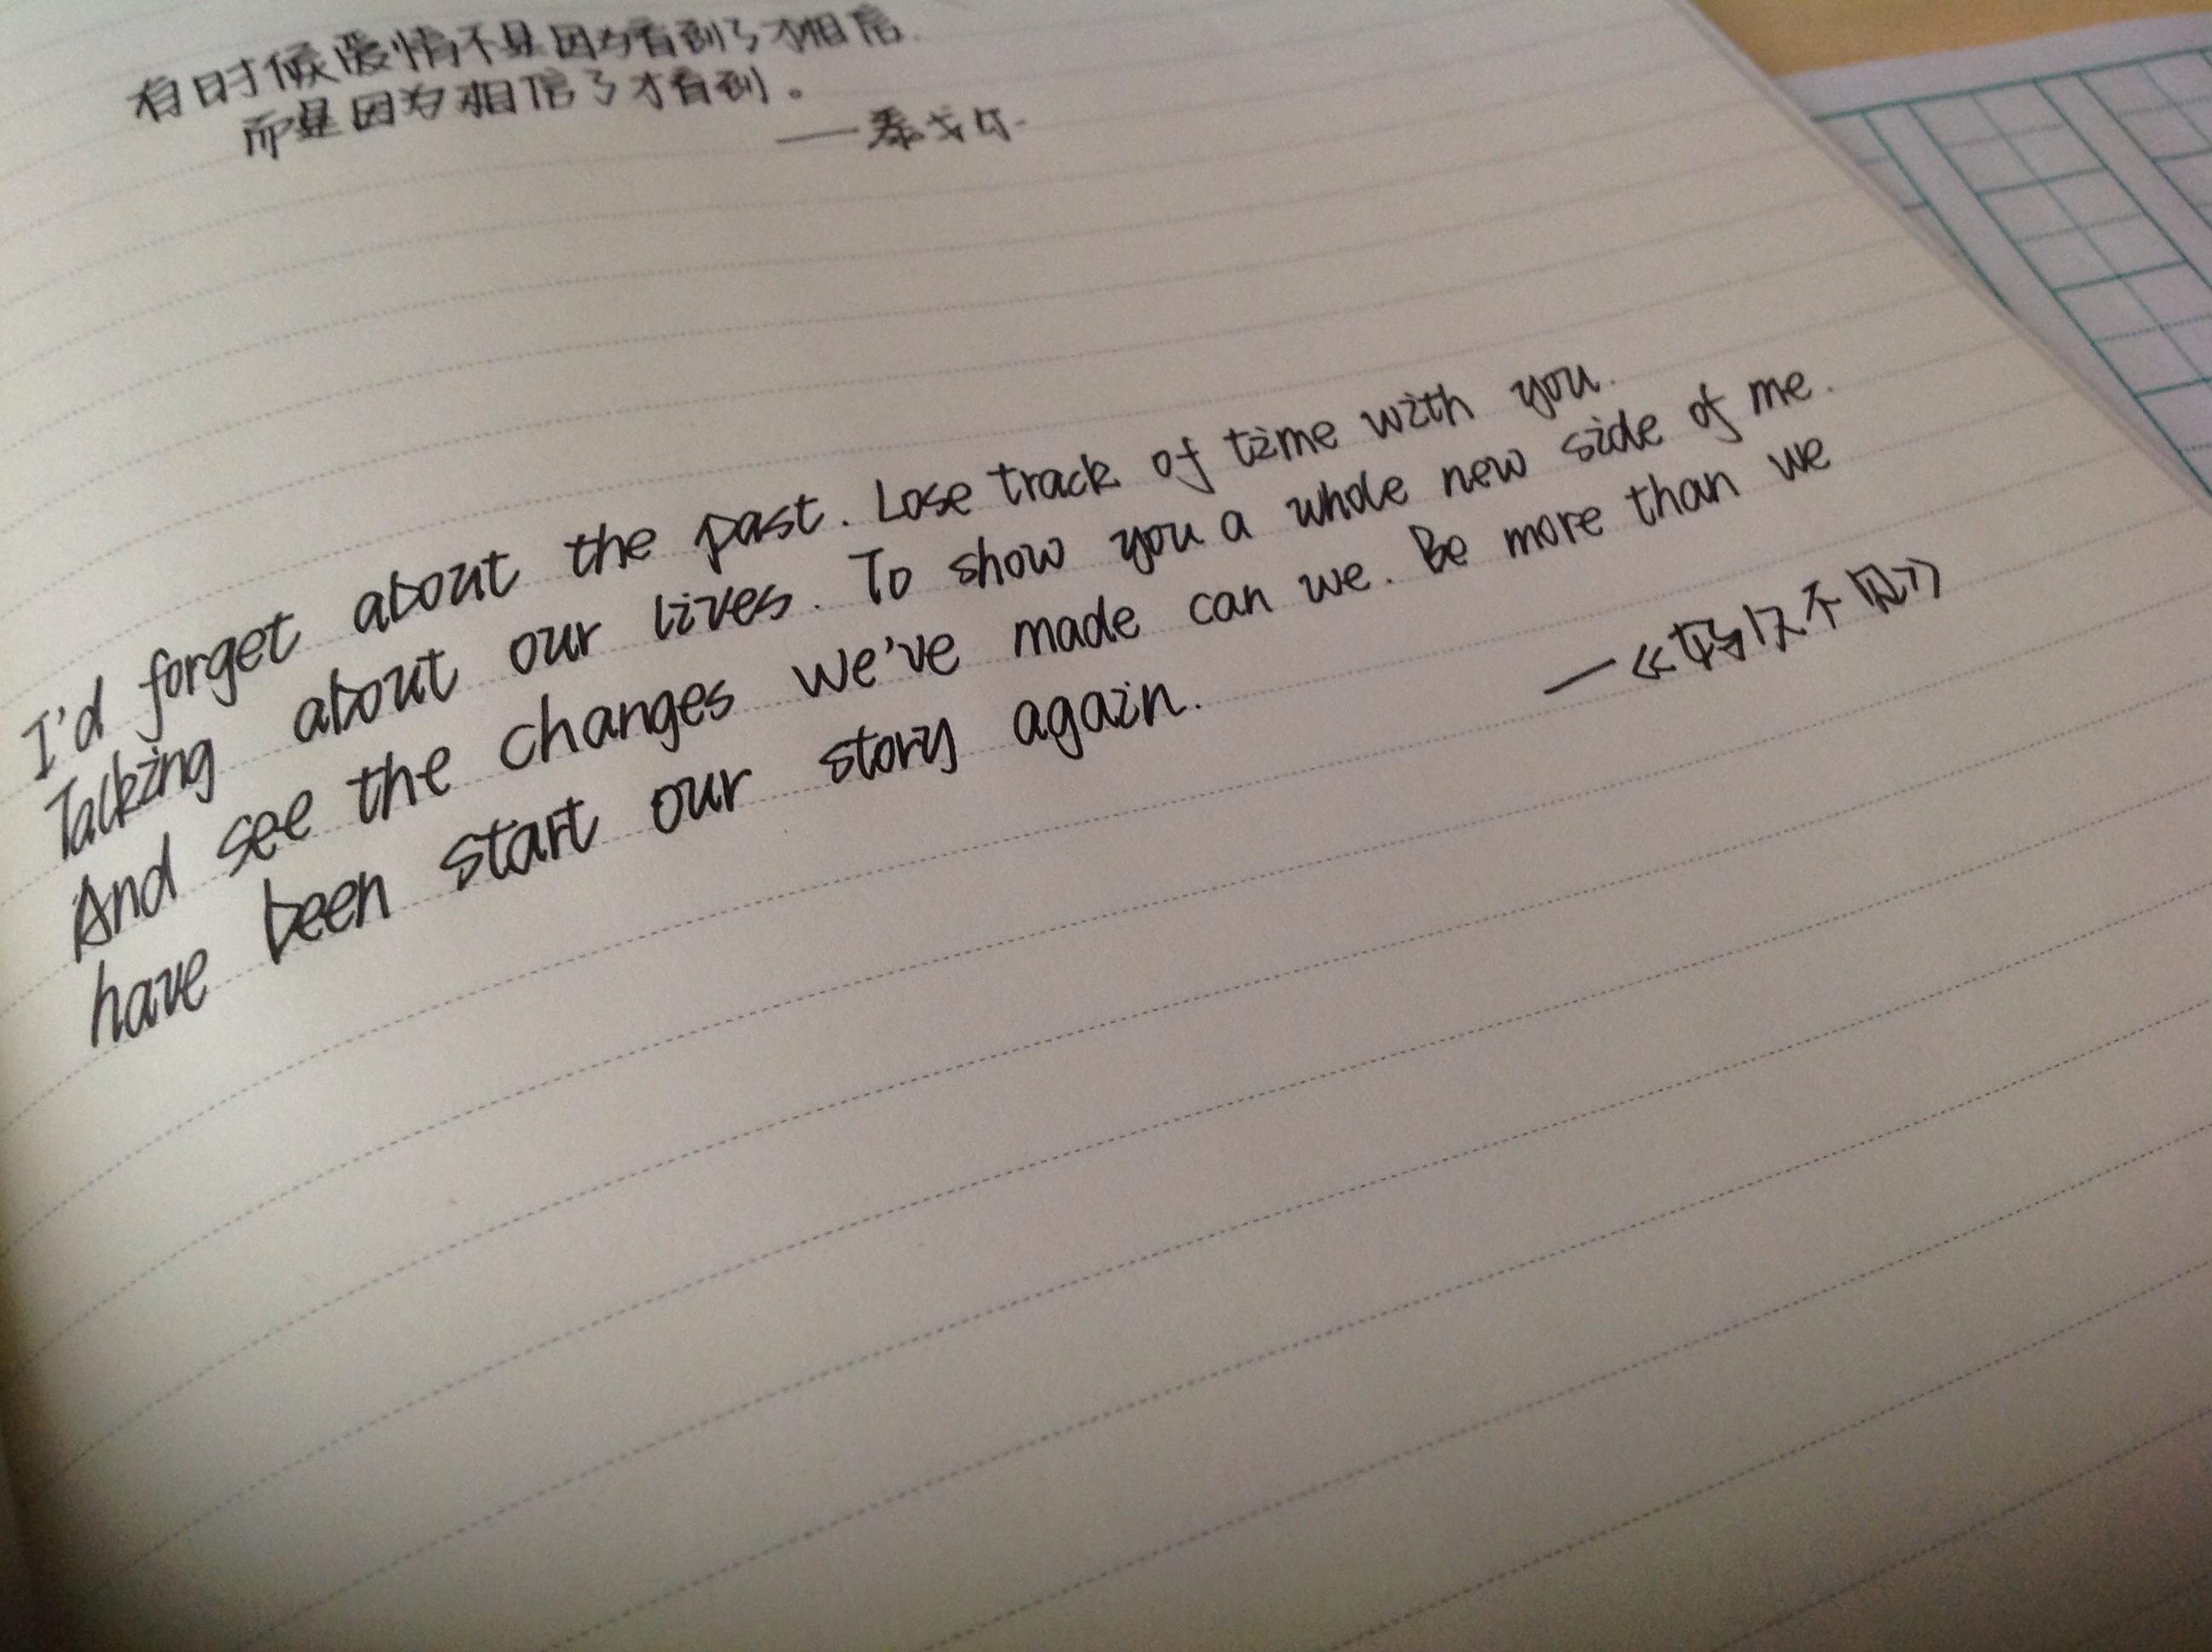 有时候爱情不是因为看到了才相信.
而是因为相信了才看到。
——泰戈尔.
I'd forget about the past. Lose track of time with you.
Talking about our lives. To show you a whole new side of me.
And see the changes we've made can we. Be more than we
have been start our story again.
—《好久不见》